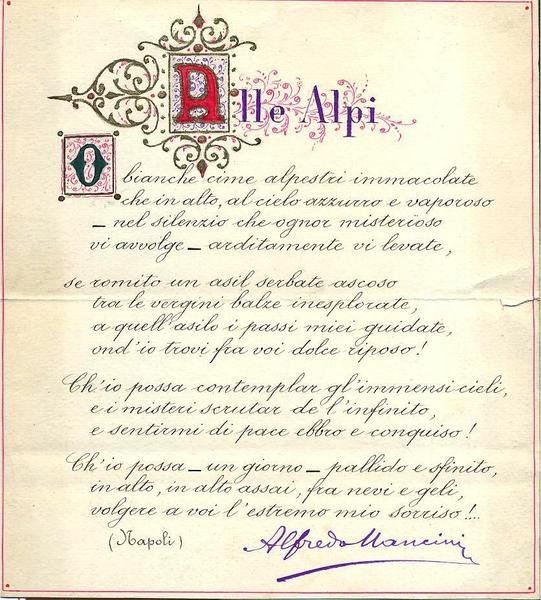 Alle Alpi
O bianche cime alpestri immacolate
che in alto, al cielo azzurro e vaporoso
– nel silenzio che ognor misterïoso
vi avvolge – arditamente vi levate,
se romito un asil serbate ascoso
tra le vergini balze inesplorate,
a quell'asilo i passi miei guidate,
ond'io trovi fra voi dolce riposo!
Ch'io possa contemplar gl'immensi cieli,
e i misteri scrutar de l'infinito,
e sentirmi di pace ebbro e conquiso!
Ch'io possa – un giorno – pallido e sfinito,
in alto, in alto assai, fra nevi e geli,
volgere a voi l'estremo mio sorriso!...
(Napoli)
Alfredo Mancini